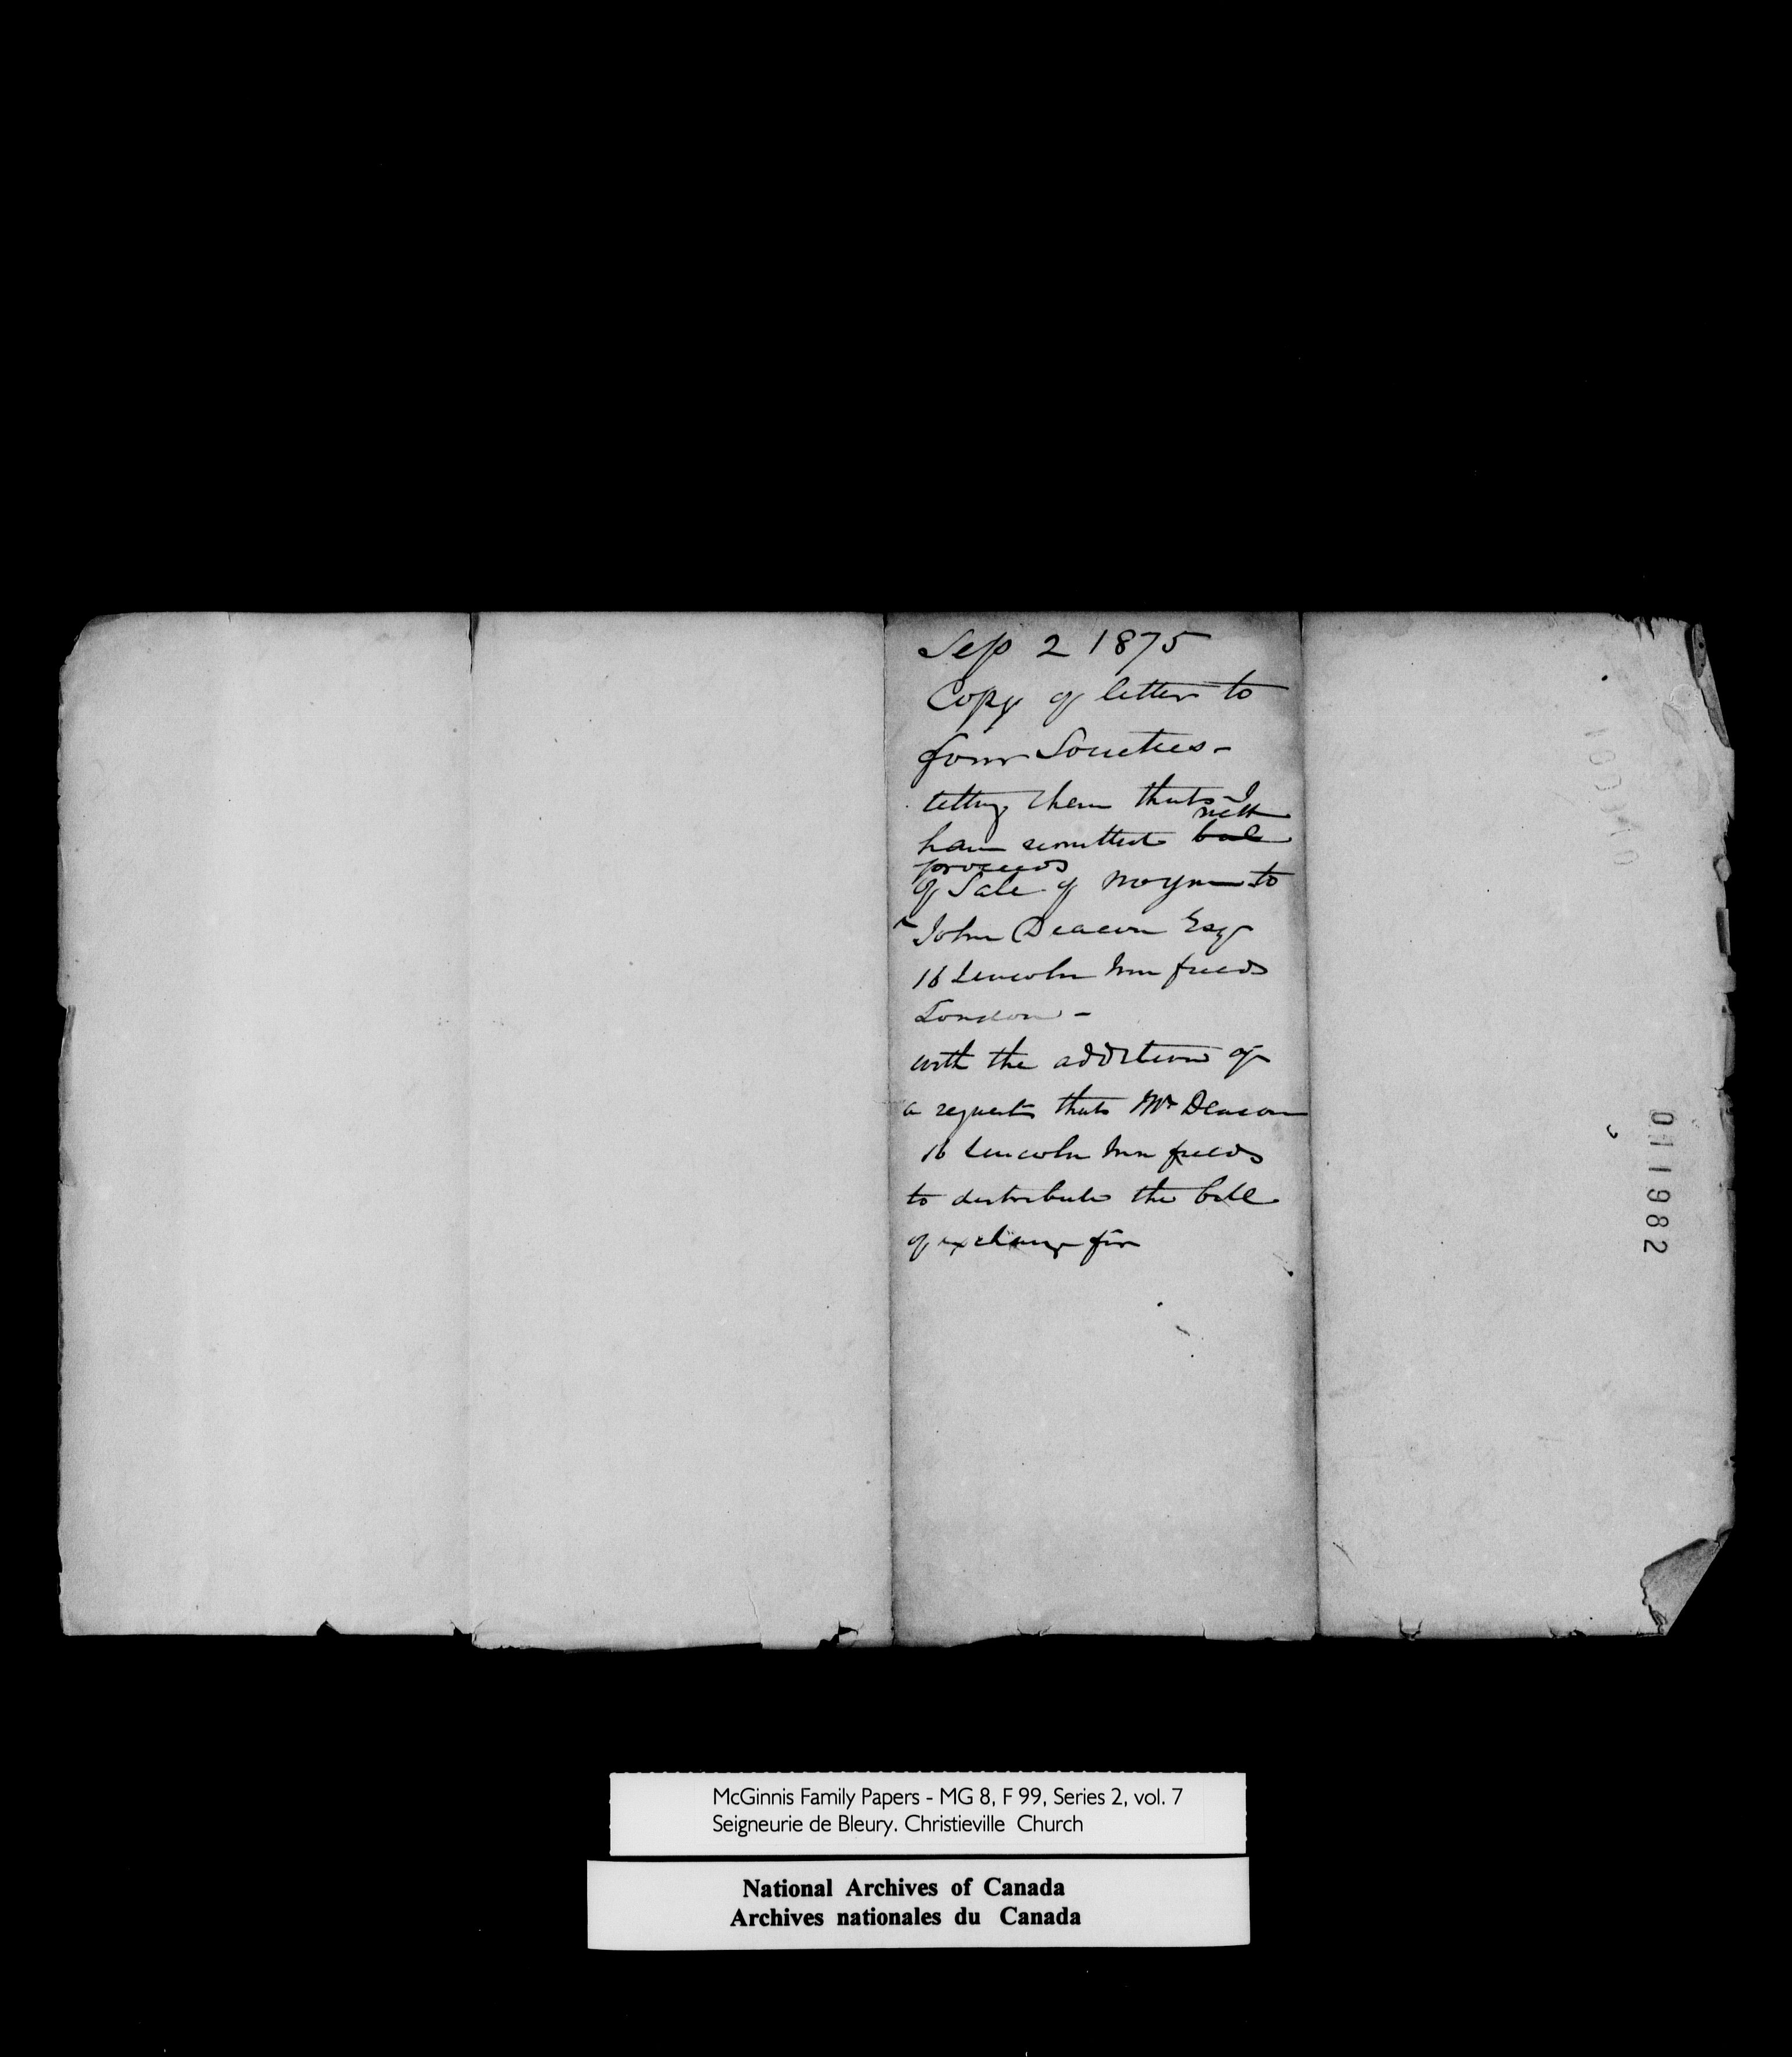 Sep 2 1875
Copy of letter to
four Societies -
telling them that I
nett
have remitted bal
proceeds
of Sale of Noyan to
John Deacon Esqr
16 Lincoln Inn fields
London -
with the addition of
a request that Mr Deacon
16 Lincoln Inn fields
to distribute the bill
of exchange for
011982
McGinnis Family Papers - MG 8, F 99, Series 2, vol. 7
Seigneurie de Bleury. Christieville Church
National Archives of Canada
Archives nationales du Canada